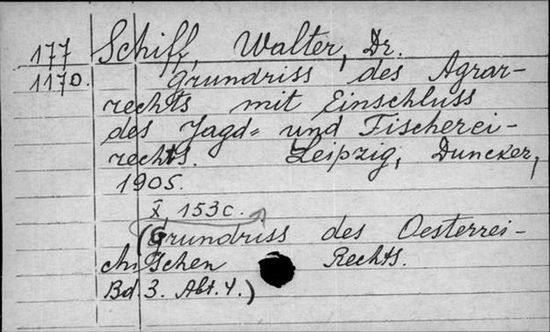 177 Schiff, Walter, Dr.
1170. Grundriss des Agrar-
rechts mit Einschluss
des Jagd- und Fischerei-
rechts. Leipzig, Duncker,
1905.
X, 153 c.
(Grundriss des Oesterrei-
chischen Rechts.
Bd 3. Abt. 4.)